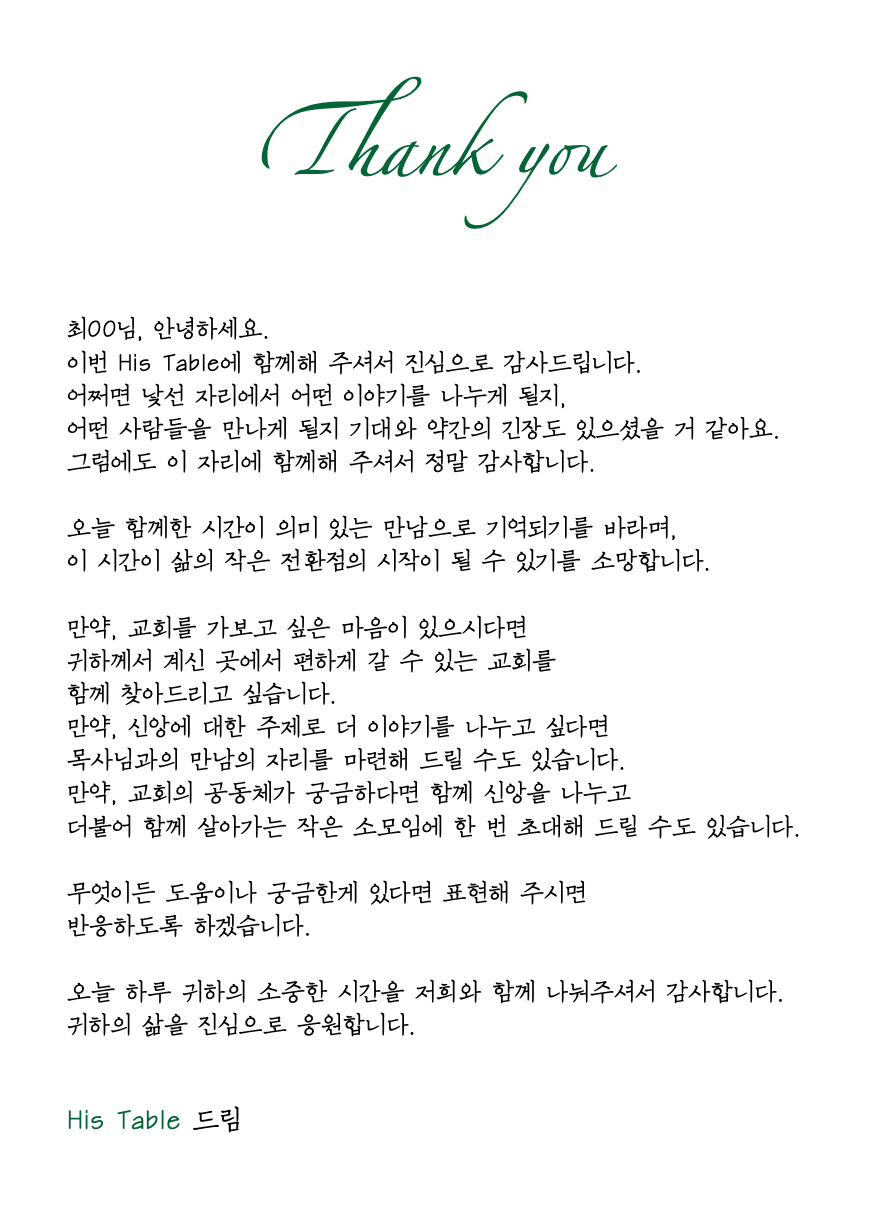 Thank you
최OO님, 안녕하세요.
이번 His Table에 함께해 주셔서 진심으로 감사드립니다.
어쩌면 낯선 자리에서 어떤 이야기를 나누게 될지,
어떤 사람들을 만나게 될지 기대와 약간의 긴장도 있으셨을 거 같아요.
그럼에도 이 자리에 함께해 주셔서 정말 감사합니다.
오늘 함께한 시간이 의미 있는 만남으로 기억되기를 바라며,
이 시간이 삶의 작은 전환점의 시작이 될 수 있기를 소망합니다.
만약, 교회를 가보고 싶은 마음이 있으시다면
귀하께서 계신 곳에서 편하게 갈 수 있는 교회를
함께 찾아드리고 싶습니다.
만약, 신앙에 대한 주제로 더 이야기를 나누고 싶다면
목사님과의 만남의 자리를 마련해 드릴 수도 있습니다.
만약, 교회의 공동체가 궁금하다면 함께 신앙을 나누고
더불어 함께 살아가는 작은 소모임에 한 번 초대해 드릴 수도 있습니다.
무엇이든 도움이나 궁금한게 있다면 표현해 주시면
반응하도록 하겠습니다.
오늘 하루 귀하의 소중한 시간을 저희와 함께 나눠주셔서 감사합니다.
귀하의 삶을 진심으로 응원합니다.
His Table 드림